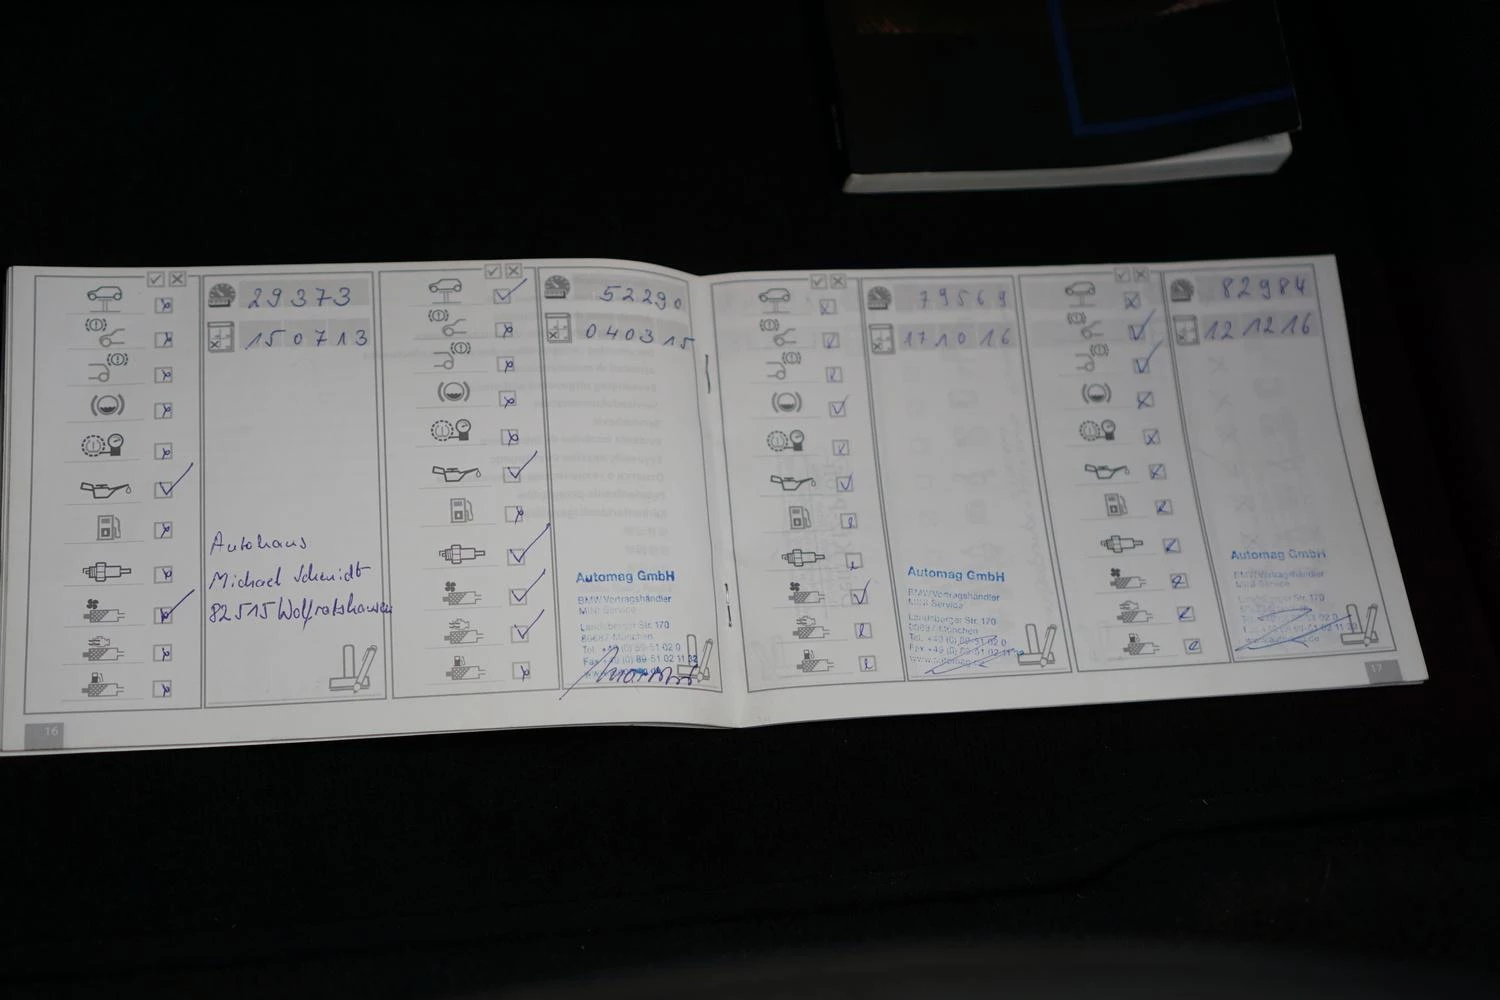 29373
150713
Autohaus
Michael Schmidt
82515 Wolfratshausen
16
52290
040315
Automag GmbH
BMW Vertragshändler
MINI Service
Landsberger Str. 170
80687 München
Tel. +49 (0) 89-51 02 0
Fax +49 (0) 89-51 02 11 32
79569
171016
Automag GmbH
BMW Vertragshändler
MINI Service
Landsberger Str. 170
80687 München
Tel. +49 (0) 89-51 02 0
Fax +49 (0) 89-51 02 11 32
www.automag.de
82984
121216
Automag GmbH
BMW Vertragshändler
MINI Service
Landsberger Str. 170
www.automag.de
17